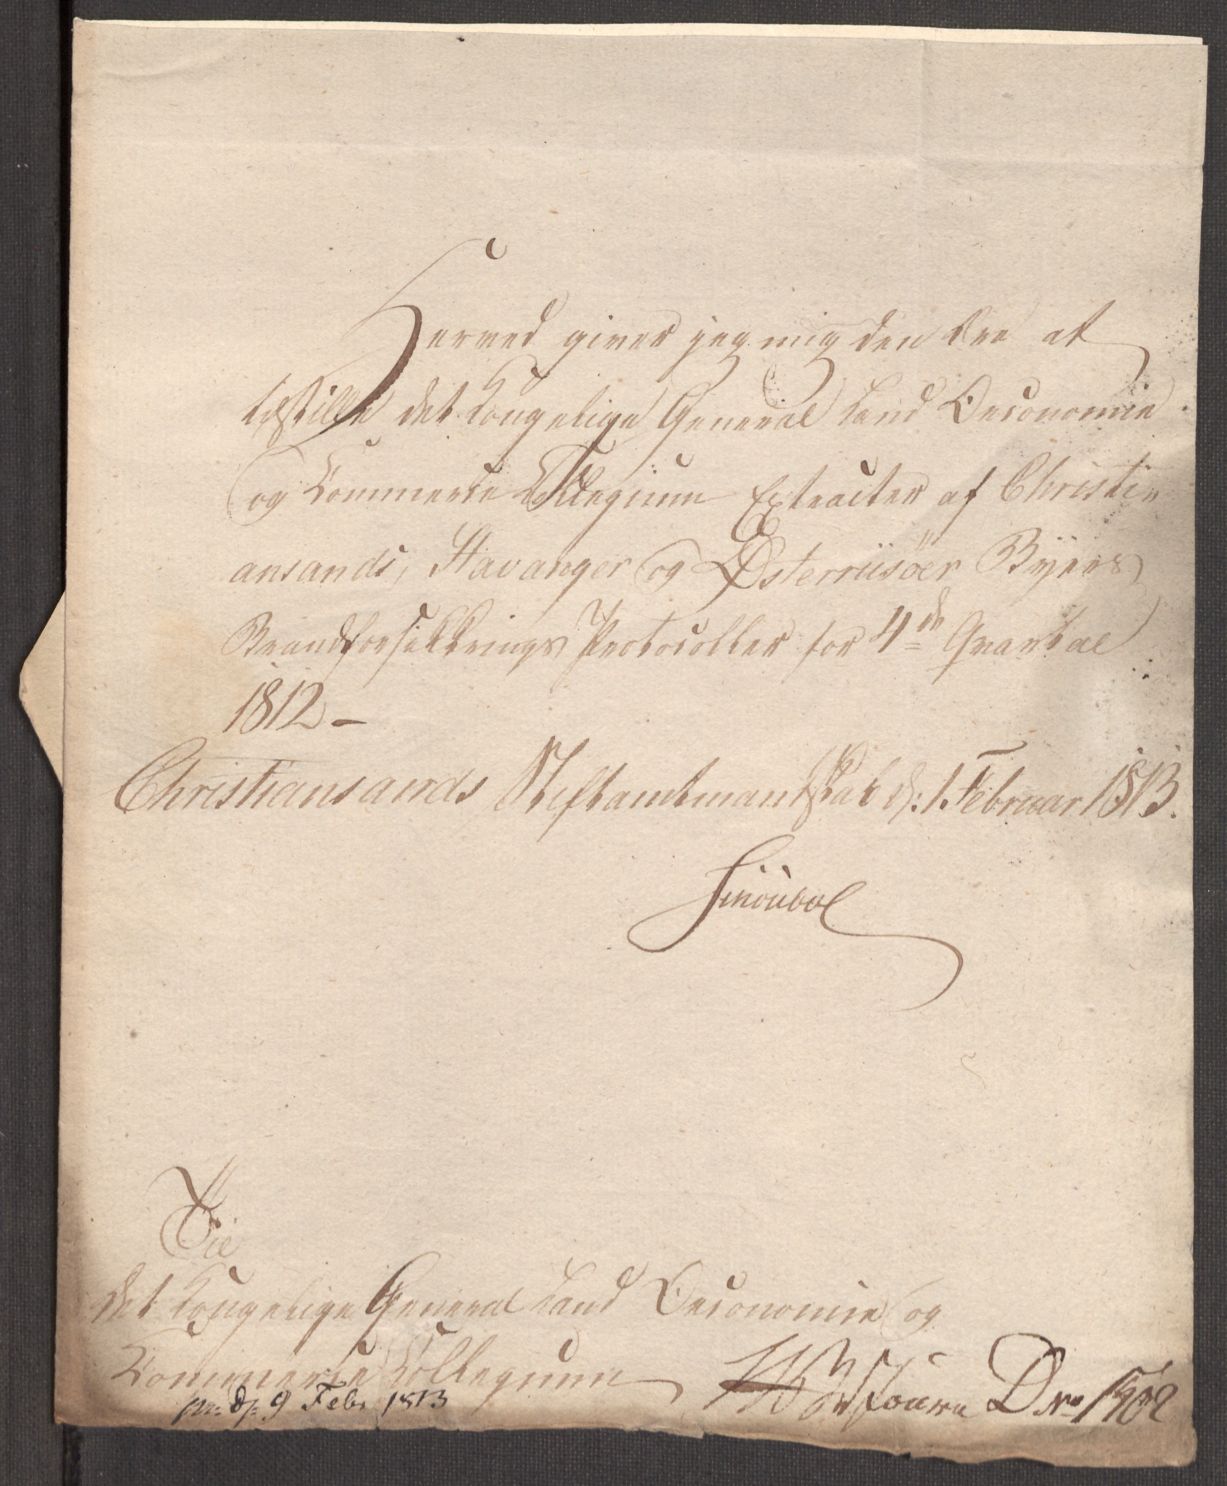 Herved giver jeg mig den Ære at
tilstille det Kongelige General Land Oeconomie
og Commerce Collegium Extracter af Christi-
ansands, Stavanger og Østerriisöer Byers
Brandforsikkrings Protocoller for 4de Qvartal
1812 –
Christiansands Stiftamtmandskab d: 1. Februar 1813.
Til
det Kongelige General Land Oeconomie og
Commerce Collegium
pr: d: 9 Febr 1813
Journ D No 1902